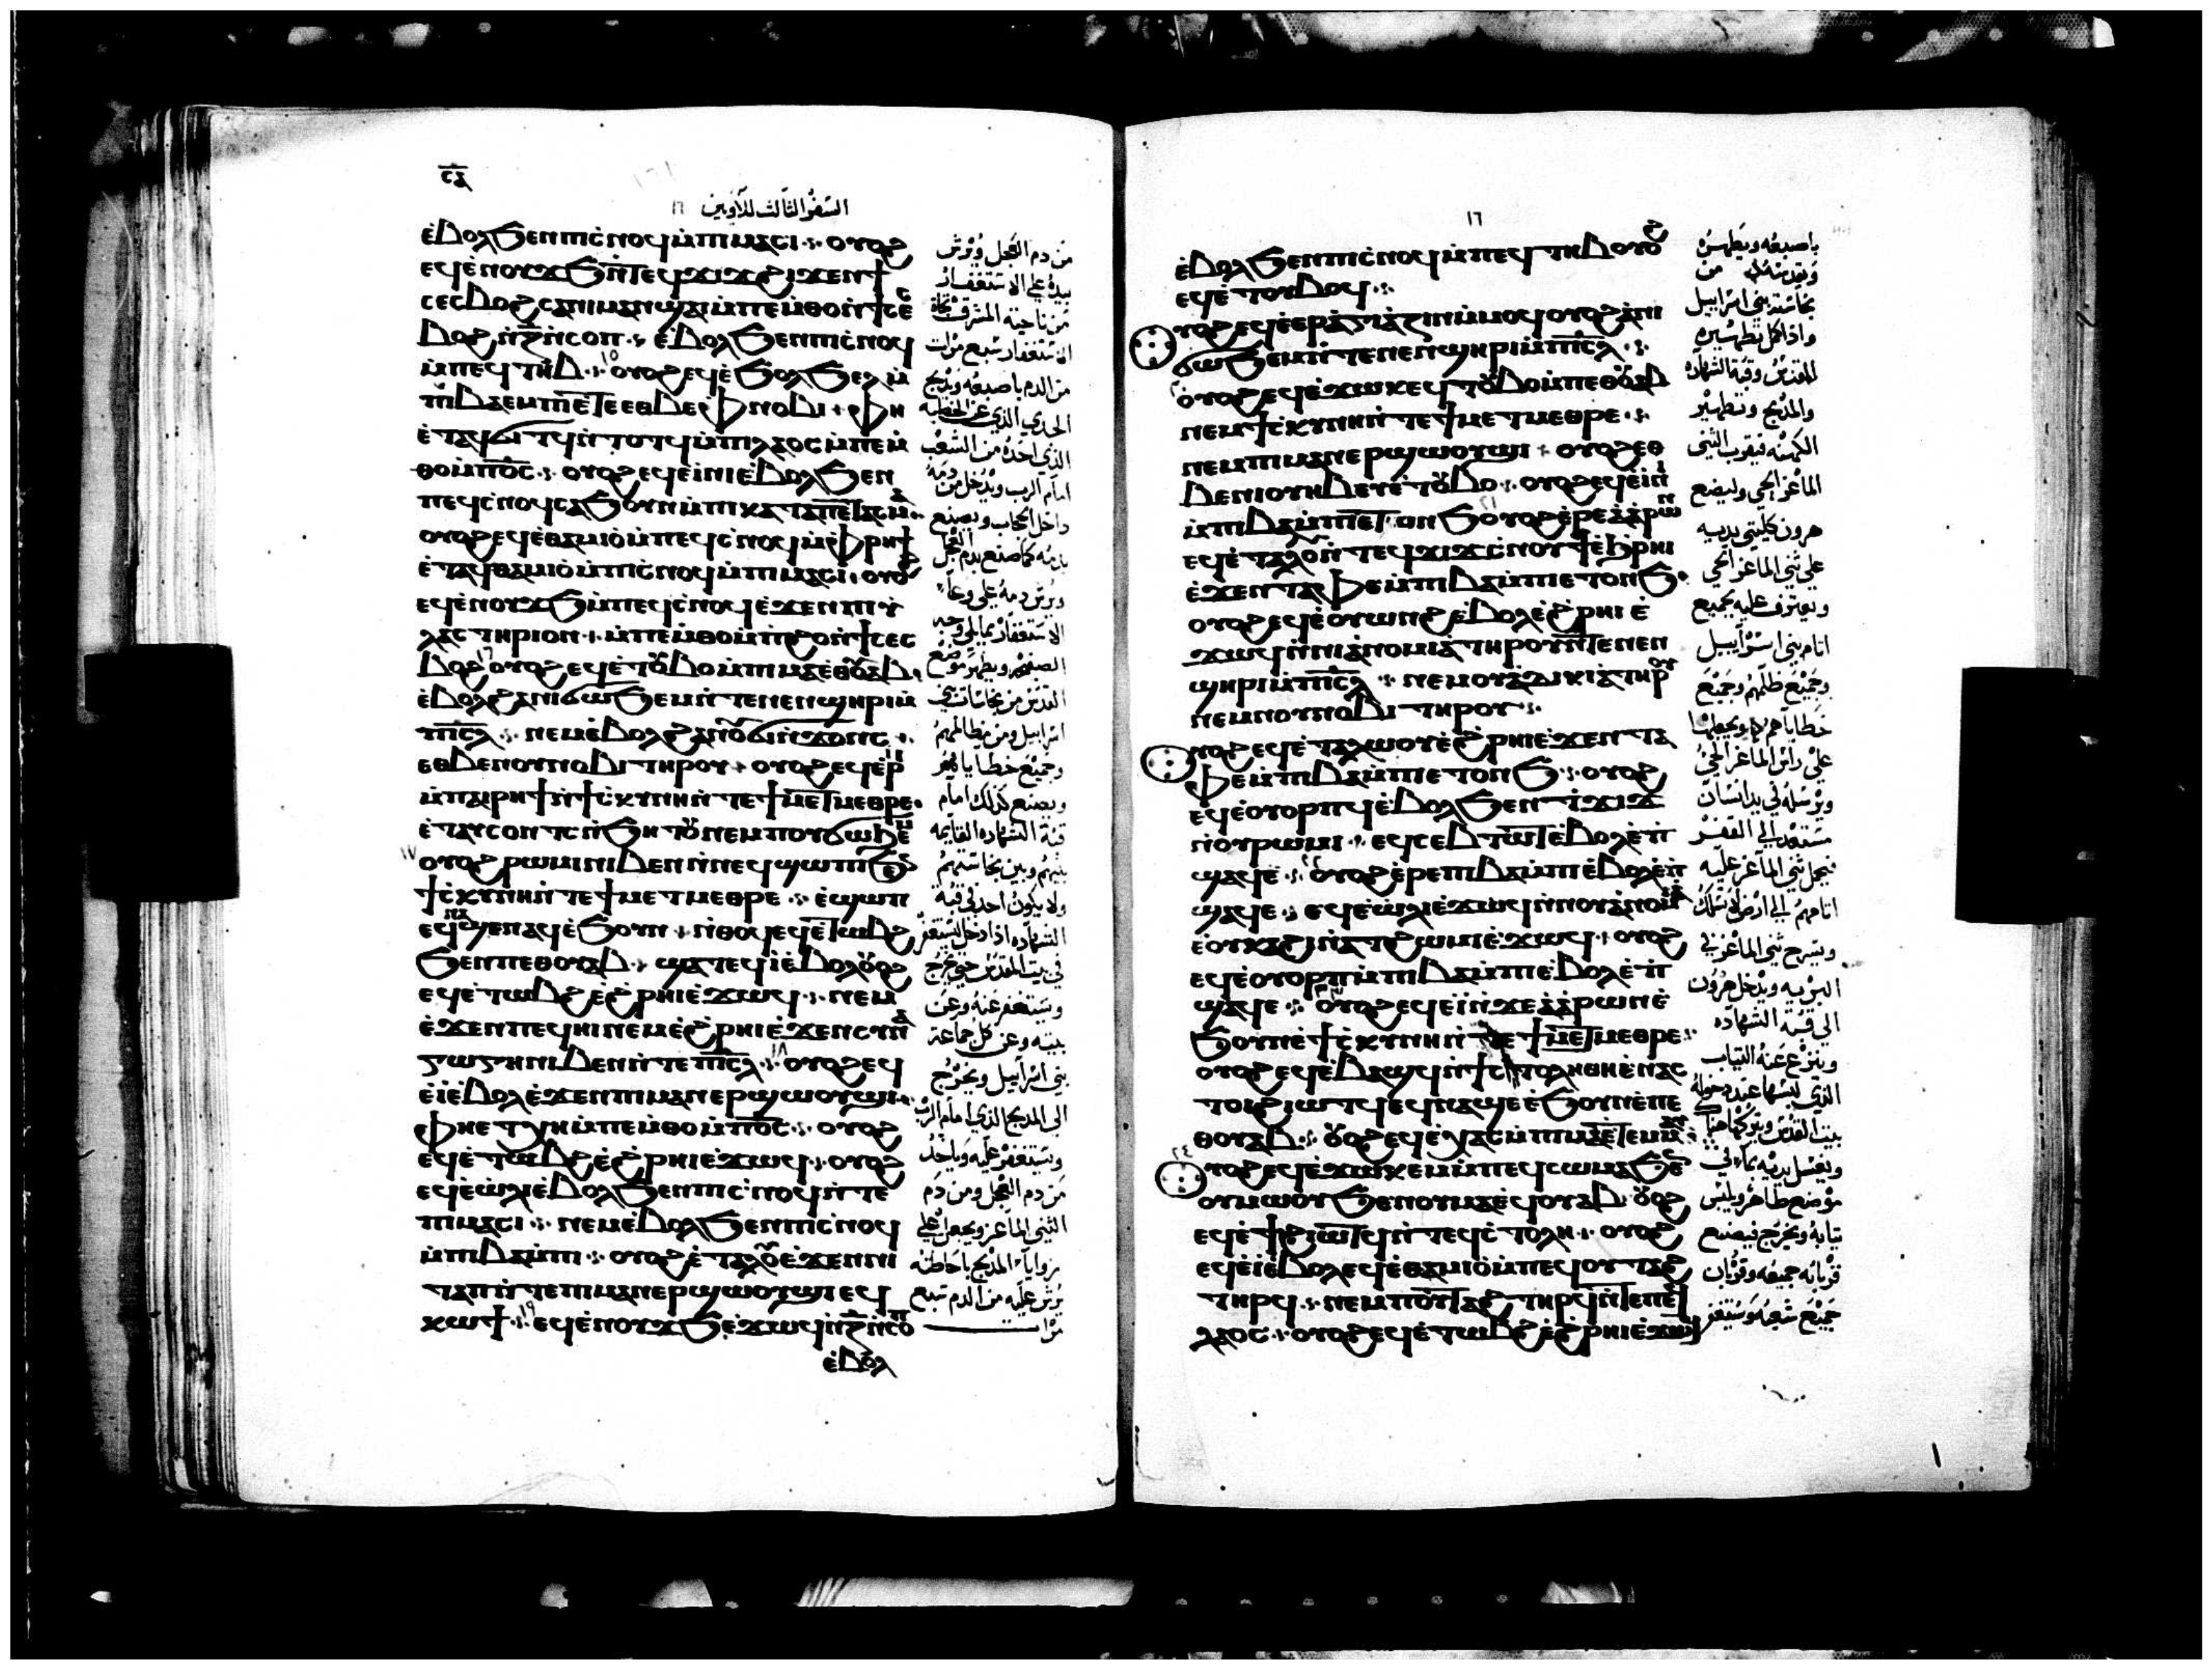 ⲥⲇ
السفر الثالث للاويين ١٦
ⲉ̀ⲃⲟⲗϧⲉⲛⲡⲓⲥ̀ⲛⲟϥⲙ̀ⲡⲓⲙⲁⲥⲓ ⁘ ⲟⲩⲟϩ
ⲉϥⲉ̀ⲛⲟⲩϫϧ
ⲃⲟϩ ⲛ̀ⲍ̄ⲛ̀ⲥⲟⲡ ⁘ ⲉ̀ⲃⲟⲗϧⲉⲛⲡⲓⲥ̀ⲛⲟϥ
ⲙ̀ⲡⲉϥⲧⲏⲃ ⁘ ⲟⲩⲟϩⲉϥⲉ̀ϧⲟⲗϧⲉⲗⲙ̀
ⲉ̀ⲧⲁϥϭⲓⲧϥⲛ̀ⲧⲟⲧϥⲙ̀ⲡⲓⲗⲁⲟⲥⲙ̀ⲡⲉⲙ̀
ⲑⲟⲙ̀ⲡⲟ̅ⲥ̅ ⁘ ⲟⲩⲟϩⲉϥⲉ̀ⲓⲛⲓⲉ̀ⲃⲟⲗϧⲉⲛ
ⲡⲉϥⲥ̀ⲛⲟϥⲥⲁϧⲟⲩⲛⲙ̀ⲡⲓⲕⲁⲧⲁⲡⲉⲧⲁⲥⲙⲁ
ⲟⲩⲟϩⲉϥⲉ̀ⲑⲁⲙⲓⲟ̀ⲙ̀ⲡⲉϥⲥ̀ⲛⲟϥⲙ̀ⲫ̀ⲣⲏϯ
ⲉ̀ⲧⲁϥⲑⲁⲙⲓⲟ̀ⲙ̀ⲡⲓⲥ̀ⲛⲟϥⲙ̀ⲡⲓⲙⲁⲥⲓ ⲟⲩⲟϩ
ⲉϥⲉ̀ⲛⲟⲩϫϧⲙ̀ⲡⲉϥⲥ̀ⲛⲟϥⲉ̀ϫⲉⲛⲡⲓⲩ̀
ⲗⲁⲥⲧⲏⲣⲓⲟⲛ ⁘ ⲙ̀ⲡⲉⲙ̀ⲑⲟⲙ̀ⲡ̀ϩⲟⲛ̀ϯⲥⲉⲥ
ⲃⲟϩ ⲟⲩⲟϩⲉϥⲉ̀ⲧⲟⲩⲃⲟⲙ̀ⲡⲓⲙⲁⲉ̀ⲑⲟⲩⲁⲃ
ⲉ̀ⲃⲟⲗϩⲁⲛⲓϭⲱϧⲉⲙⲛ̀ⲧⲉⲛⲉⲛϣⲏⲣⲓⲙ̀
ⲡⲓ̅ⲥ̅ⲗ̅ ⁘ ⲛⲉⲙⲉ̀ⲃⲟⲗϩⲁⲛⲟⲩϭⲓⲛ̀ϫⲟⲛⲥ
ⲉⲑⲃⲉⲛⲟⲩⲛⲟⲃⲓⲧⲏⲣⲟⲩ ⲟⲩⲟϩⲉϥⲉ̀ⲣ
ⲙ̀ⲡⲁⲓⲣⲏϯⲛ̀ϯⲥ̀ⲕⲩⲛⲏⲛ̀ⲧⲉϯⲙⲉⲧⲙⲉⲑⲣⲉ
ⲟⲩⲟϩⲣⲱⲙⲓⲛⲓⲃⲉⲛⲛ̀ⲛⲉϥϣⲱⲡⲓϧⲉⲛ
ϯⲥ̀ⲕⲩⲛⲏⲛ̀ⲧⲉϯⲙⲉⲧⲙⲉⲑⲣⲉ ⁘ ⲉ̀ϣⲱⲡ
ⲉϥϣⲁⲛϣⲉⲛⲁϥⲉ̀ϧⲟⲩⲛ ⲛ̀ⲑⲟϥⲉϥⲉ̀ⲧⲱⲃϩ
ϧⲉⲛⲡⲉⲑⲟⲩⲁⲃ ϣⲁⲧⲉϥⲓ̀ⲉ̀ⲃⲟⲗ ⲟⲩⲟϩ
ⲉϥⲉ̀ⲧⲱⲃϩⲉ̀ϩ̀ⲣⲏⲓⲉ̀ϫⲱϥ ⁘ ⲛⲉⲙ
ⲉ̀ϫⲉⲛⲡⲉϥⲏⲓⲛⲉⲙⲉ̀ϩ̀ⲣⲏⲓⲉ̀ϫⲉⲛⲥⲩⲛⲁ
ⲅⲱⲅⲏⲛⲓⲃⲉⲛⲛ̀ⲧⲉⲡⲓ̅ⲥ̅ⲗ̅ ⁘ ⲟⲩⲟϩⲉϥ
ⲉ̀ⲓ̀ⲉ̀ⲃⲟⲗⲉ̀ϫⲉⲛⲡⲓⲙⲁⲛⲉⲣϣⲱⲟⲩϣⲓ
ⲫⲏⲉⲧⲭⲏⲙ̀ⲡⲉⲙ̀ⲑⲟⲙ̀ⲡⲟ̅ⲥ̅ ⁘ ⲟⲩⲟϩ
ⲉϥⲉ̀ⲧⲱⲃϩⲉ̀ϩ̀ⲣⲏⲓⲉ̀ϫⲱϥ ⁘ ⲟⲩⲟϩ
ⲉϥⲉ̀ⲱⲗⲓⲉ̀ⲃⲟⲗϧⲉⲛⲡⲓⲥ̀ⲛⲟϥⲛ̀ⲧⲉ
ⲡⲓⲙⲁⲥⲓ ⁘ ⲛⲉⲙⲉ̀ⲃⲟⲗϧⲉⲛⲡⲓⲥ̀ⲛⲟϥ
ⲙ̀ⲡⲓⲃⲁⲙ̀ⲡⲓ ⁘ ⲟⲩⲟϩⲉ̀ⲧⲁⲗⲟⲩⲉ̀ϫⲉⲛⲛⲓ
ⲧⲁⲡⲛ̀ⲧⲉⲡⲓⲙⲁⲛⲉⲣϣⲱⲟⲩϣⲓⲉϥ
ⲕⲱϯ ⁘ ⲉϥⲉ̀ⲛⲟⲩϫϧⲉ̀ϫⲱϥⲛ̀ⲍ̄ⲛ̀ⲥⲟⲡ
ⲉ̀ⲃⲟⲗ
من دم العجل ويرش
بيده علي الاستغفار
من ناحية المشرق
الاستغفار سبع مرات
من الدم باصبعه ويذبح
الجدي الذي عن الخطيه
الذي اخده من الشعب
امام الرب ويدخل من دمه
داخل الحجاب ويصنع
بدمه كما صنع بدم العجل
ويرش دمه علي
ويصنع كذلك امام
قبة الشهاده القايمه
بينهم وبين نجاستهم
ولا يكون احد في قبة
الشهاده اذا دخل ليستغفر
في بيت المقدس حتي يخرج
ويستغفر عنه وعن
بيته وعن كل جماعة
بني اسراييل ويخرج
الى المذبح الذي امام الرب
ويستغفر عليه وياخد
من دم العجل ومن دم
الثني الماعز ويجعل علي
زوايا المذبح باحاطته
يرش عليه من الدم سبع
مرات
١٦
ⲉ̀ⲃⲟⲗϧⲉⲛⲡⲓⲥ̀ⲛⲟϥⲙ̀ⲡⲉϥⲧⲏⲃ ⲟⲩⲟϩ
ⲉϥⲉ̀ⲧⲟⲩⲃⲟϥ ⁘
ⲟⲩⲟϩⲉϥⲉ̀ⲉⲣⲁ̀ⲅⲓⲁⲍⲓⲛⲙ̀ⲙⲟϥ ⲟⲩⲟϩⲁⲛⲓ
ϭⲱϧⲉⲙⲛ̀ⲧⲉⲛⲉⲛϣⲏⲣⲓⲙ̀ⲡⲓ̅ⲥ̅ⲗ̅ ⁘
ⲟⲩⲟϩⲉϥⲉ̀ϫⲱⲕⲉϥⲧⲟⲩⲃⲟⲙ̀ⲡⲉⲑⲟⲩⲁⲃ
ⲛⲉⲙϯⲥ̀ⲕⲩⲛⲏⲛ̀ⲧⲉϯⲙⲉⲧⲙⲉⲑⲣⲉ ⁘
ⲛⲉⲙⲡⲓⲙⲁⲛⲉⲣϣⲱⲟⲩϣⲓ ⲟⲩⲟϩⲉⲑ
ⲃⲉⲛⲓⲟⲩⲏⲃⲉⲩⲉ̀ⲧⲟⲩⲃⲟ ⁘ ⲟⲩⲟϩⲉϥⲉ̀ⲓⲛⲓ
ⲙ̀ⲡⲓⲃⲁⲙ̀ⲡⲓⲉⲧⲟⲛϧ ⲟⲩⲟϩⲉ̀ⲣⲉⲁ̀ⲁ̀ⲣⲱⲛ
ⲉϥⲉ̀ⲧⲁⲗⲟⲛ̀ⲧⲉϥϫⲓϫⲥ̀ⲛⲟⲩϯⲉ̀ϩ̀ⲣⲏⲓ
ⲉ̀ϫⲉⲛⲧⲁⲫⲉⲙ̀ⲡⲓⲃⲁⲙ̀ⲡⲓⲉⲧⲟⲛϧ
ⲟⲩⲟϩⲉϥⲉ̀ⲟⲩⲱⲛϩⲉ̀ⲃⲟⲗⲉ̀ϩ̀ⲣⲏⲓⲉ̀
ϫⲱϥⲛ̀ⲛⲓⲁ̀ⲛⲟⲙⲓⲁ̀ⲧⲏⲣⲟⲩⲛ̀ⲧⲉⲛⲉⲛ
ϣⲏⲣⲓⲙ̀ⲡⲓ̅ⲥ̅ⲗ̅ ⁘ ⲛⲉⲙⲟⲩⲁ̀ⲇⲓⲕⲓⲁ̀ⲧⲏⲣⲟⲩ
ⲛⲉⲙⲛⲟⲩⲛⲟⲃⲓⲧⲏⲣⲟⲩ ⁘
ⲟⲩⲟϩⲉϥⲉ̀ⲧⲁⲗⲱⲟⲩⲉ̀ϩ̀ⲣⲏⲓⲉ̀ϫⲉⲛⲧⲁ
ⲫⲉⲙ̀ⲡⲓⲃⲁⲙ̀ⲡⲓⲉⲧⲟⲛϧ ⁘ ⲟⲩⲟϩ
ⲉϥⲉ̀ⲟⲩⲟⲣⲡϥⲉ̀ⲃⲟⲗϧⲉⲛⲧ̀ϫⲓϫ
ⲛ̀ⲟⲩⲣⲱⲙⲓ ⁘ ⲉϥⲥⲉⲃⲧⲱⲧⲉ̀ⲃⲟⲗⲉ̀ⲡ̀
ϣⲁϥⲉ ⁘ ⲟⲩⲟϩⲉ̀ⲣⲉⲡⲓⲃⲁⲙ̀ⲡⲓⲉ̀ⲃⲟⲗⲉ̀ⲡ̀
ϣⲁϥⲉ ⁘ ⲉϥⲉ̀ⲱ̀ⲗⲓⲉ̀ϫⲱϥⲛ̀ⲛⲟⲩⲁ̀ⲛⲟⲙⲓⲁ
ⲉ̀ⲟⲩⲕⲁϩⲓⲛ̀ⲁⲧⲣⲱⲙⲓⲉ̀ϫⲱϥ ⲟⲩⲟϩ
ⲉϥⲉ̀ⲟⲩⲟⲣⲡⲙ̀ⲡⲓⲃⲁⲙ̀ⲡⲓⲉ̀ⲃⲟⲗⲉ̀ⲡ̀
ϣⲁϥⲉ ⁘ ⲟⲩⲟϩⲉϥⲉ̀ⲓ̀ⲛ̀ϫⲉⲁ̀ⲁ̀ⲣⲱⲛⲉ̀
ϧⲟⲩⲛⲉ̀ϯⲥ̀ⲕⲩⲛⲏⲛ̀ⲧⲉϯⲙⲉⲧⲙⲉⲑⲣⲉ
ⲟⲩⲟϩⲉϥⲉ̀ⲃⲁϣϥⲛ̀ϯⲥ̀ⲧⲟⲗⲏ
ⲧⲟⲓϩⲓⲱⲧϥⲉϥⲛⲁϣⲉⲉ̀ϧⲟⲩⲛⲉ̀ⲡⲉ
ⲑⲟⲩⲁⲃ ⁘ ⲟⲩⲟϩⲉϥⲉ̀ⲭⲁⲥⲙ̀ⲡⲓⲙⲁⲉ̀ⲧⲉⲙⲙⲁⲩ
ⲟⲩⲟϩⲉϥⲉ̀ϫⲱⲕⲉⲙⲙ̀ⲡⲉϥⲥⲱⲙⲁϧⲉⲛ
ⲟⲩⲙⲱⲟⲩϧⲉⲛⲟⲩⲙⲁⲉϥⲟⲩⲁⲃ ⲟⲩⲟϩ
ⲉϥⲉ̀ϯϩⲓⲱⲧϥⲛ̀ⲧⲉϥⲥ̀ⲧⲟⲗⲏ ⁘ ⲟⲩⲟϩ
ⲉϥⲉ̀ⲓ̀ⲉ̀ⲃⲟⲗⲉϥⲉ̀ⲑⲁⲙⲓⲟ̀ⲙ̀ⲡⲉϥⲟⲩⲧⲁϩ
ⲧⲏⲣϥ ⁘ ⲛⲉⲙⲡⲟⲩⲧⲁϩⲧⲏⲣϥⲛ̀ⲧⲉⲡⲉϥ
ⲗⲁⲟⲥ ⁘ ⲟⲩⲟϩⲉϥⲉ̀ⲧⲱⲃϩⲉ̀ϩ̀ⲣⲏⲓⲉ̀ϫⲱϥ
باصبعه ويطهره
نجاسة بني اسراييل
واذا كمل تطهيره
المقدس وقبة الشهاده
والمذبح وتطهير
الكهنه فيقرب الثني
الماعز الحي وليضع
هرون كلتي يديه
علي ثني الماعز الحي
ويعترف عليه بجميع
اثام بني اسراييل
وجميع ظلمهم وجميع
خطاياهم ويجعلها
علي راس الماعز الحي
ويرسله في يد انسان
مستعد الى القفر
فيحمل ثني الماعز عليه
ويسرح ثني الماعز في
البريه ويدخل هرون
الي قبة الشهاده
وينزع عنه الثياب
الذي لبسها عند دخوله
بيت القدس ويتركها هنا
ويغسل بدنه بماء في
موضع طاهر ويلبس
ثيابه ويخرج فيصنع
قربانه جميعه وقربان
جميع شعبه ويستغفر